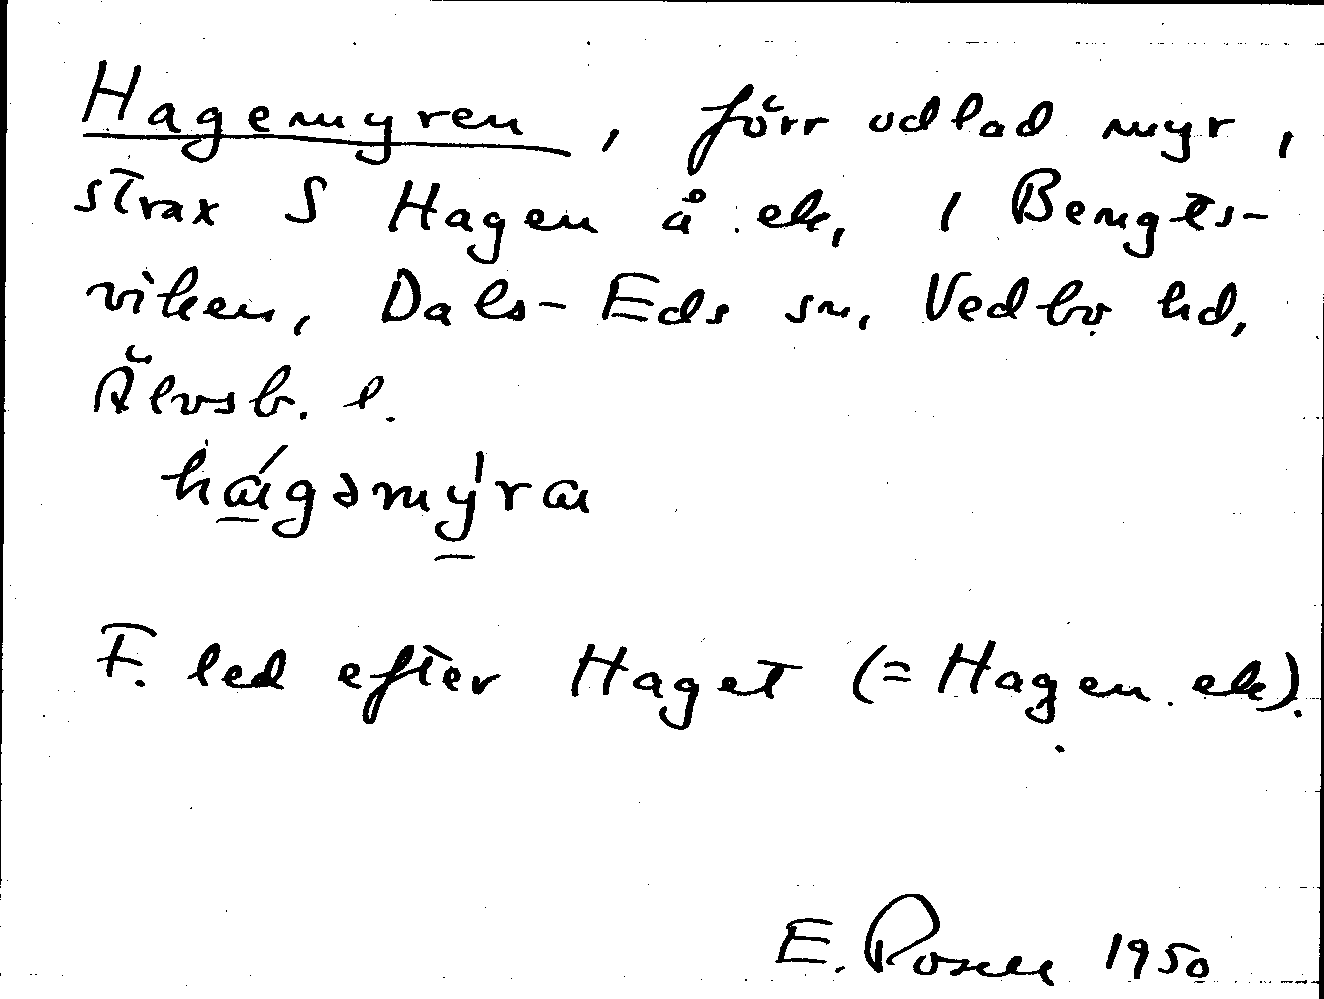 Hagemyren, förr odlad myr,
strax S Hagen å ek, i Bengts-
viken, Dals-Eds sn, Vedbo hd,
Älvsb. l.
hágəmýra
F. led efter Haget (= Hagen ek).
E. Rosell 1950